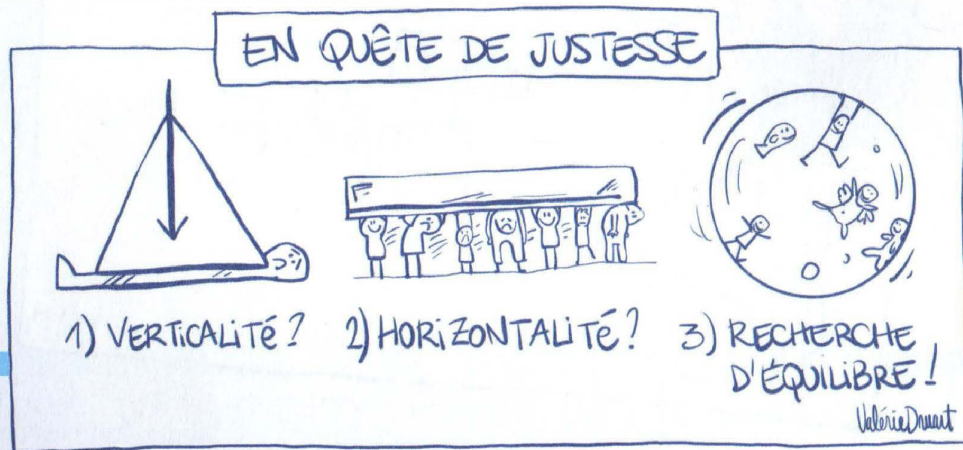 EN QUÊTE DE JUSTESSE
1) VERTICALITÉ?
2) HORIZONTALITÉ?
3) RECHERCHE
D'ÉQUILIBRE!
Valérie Druart